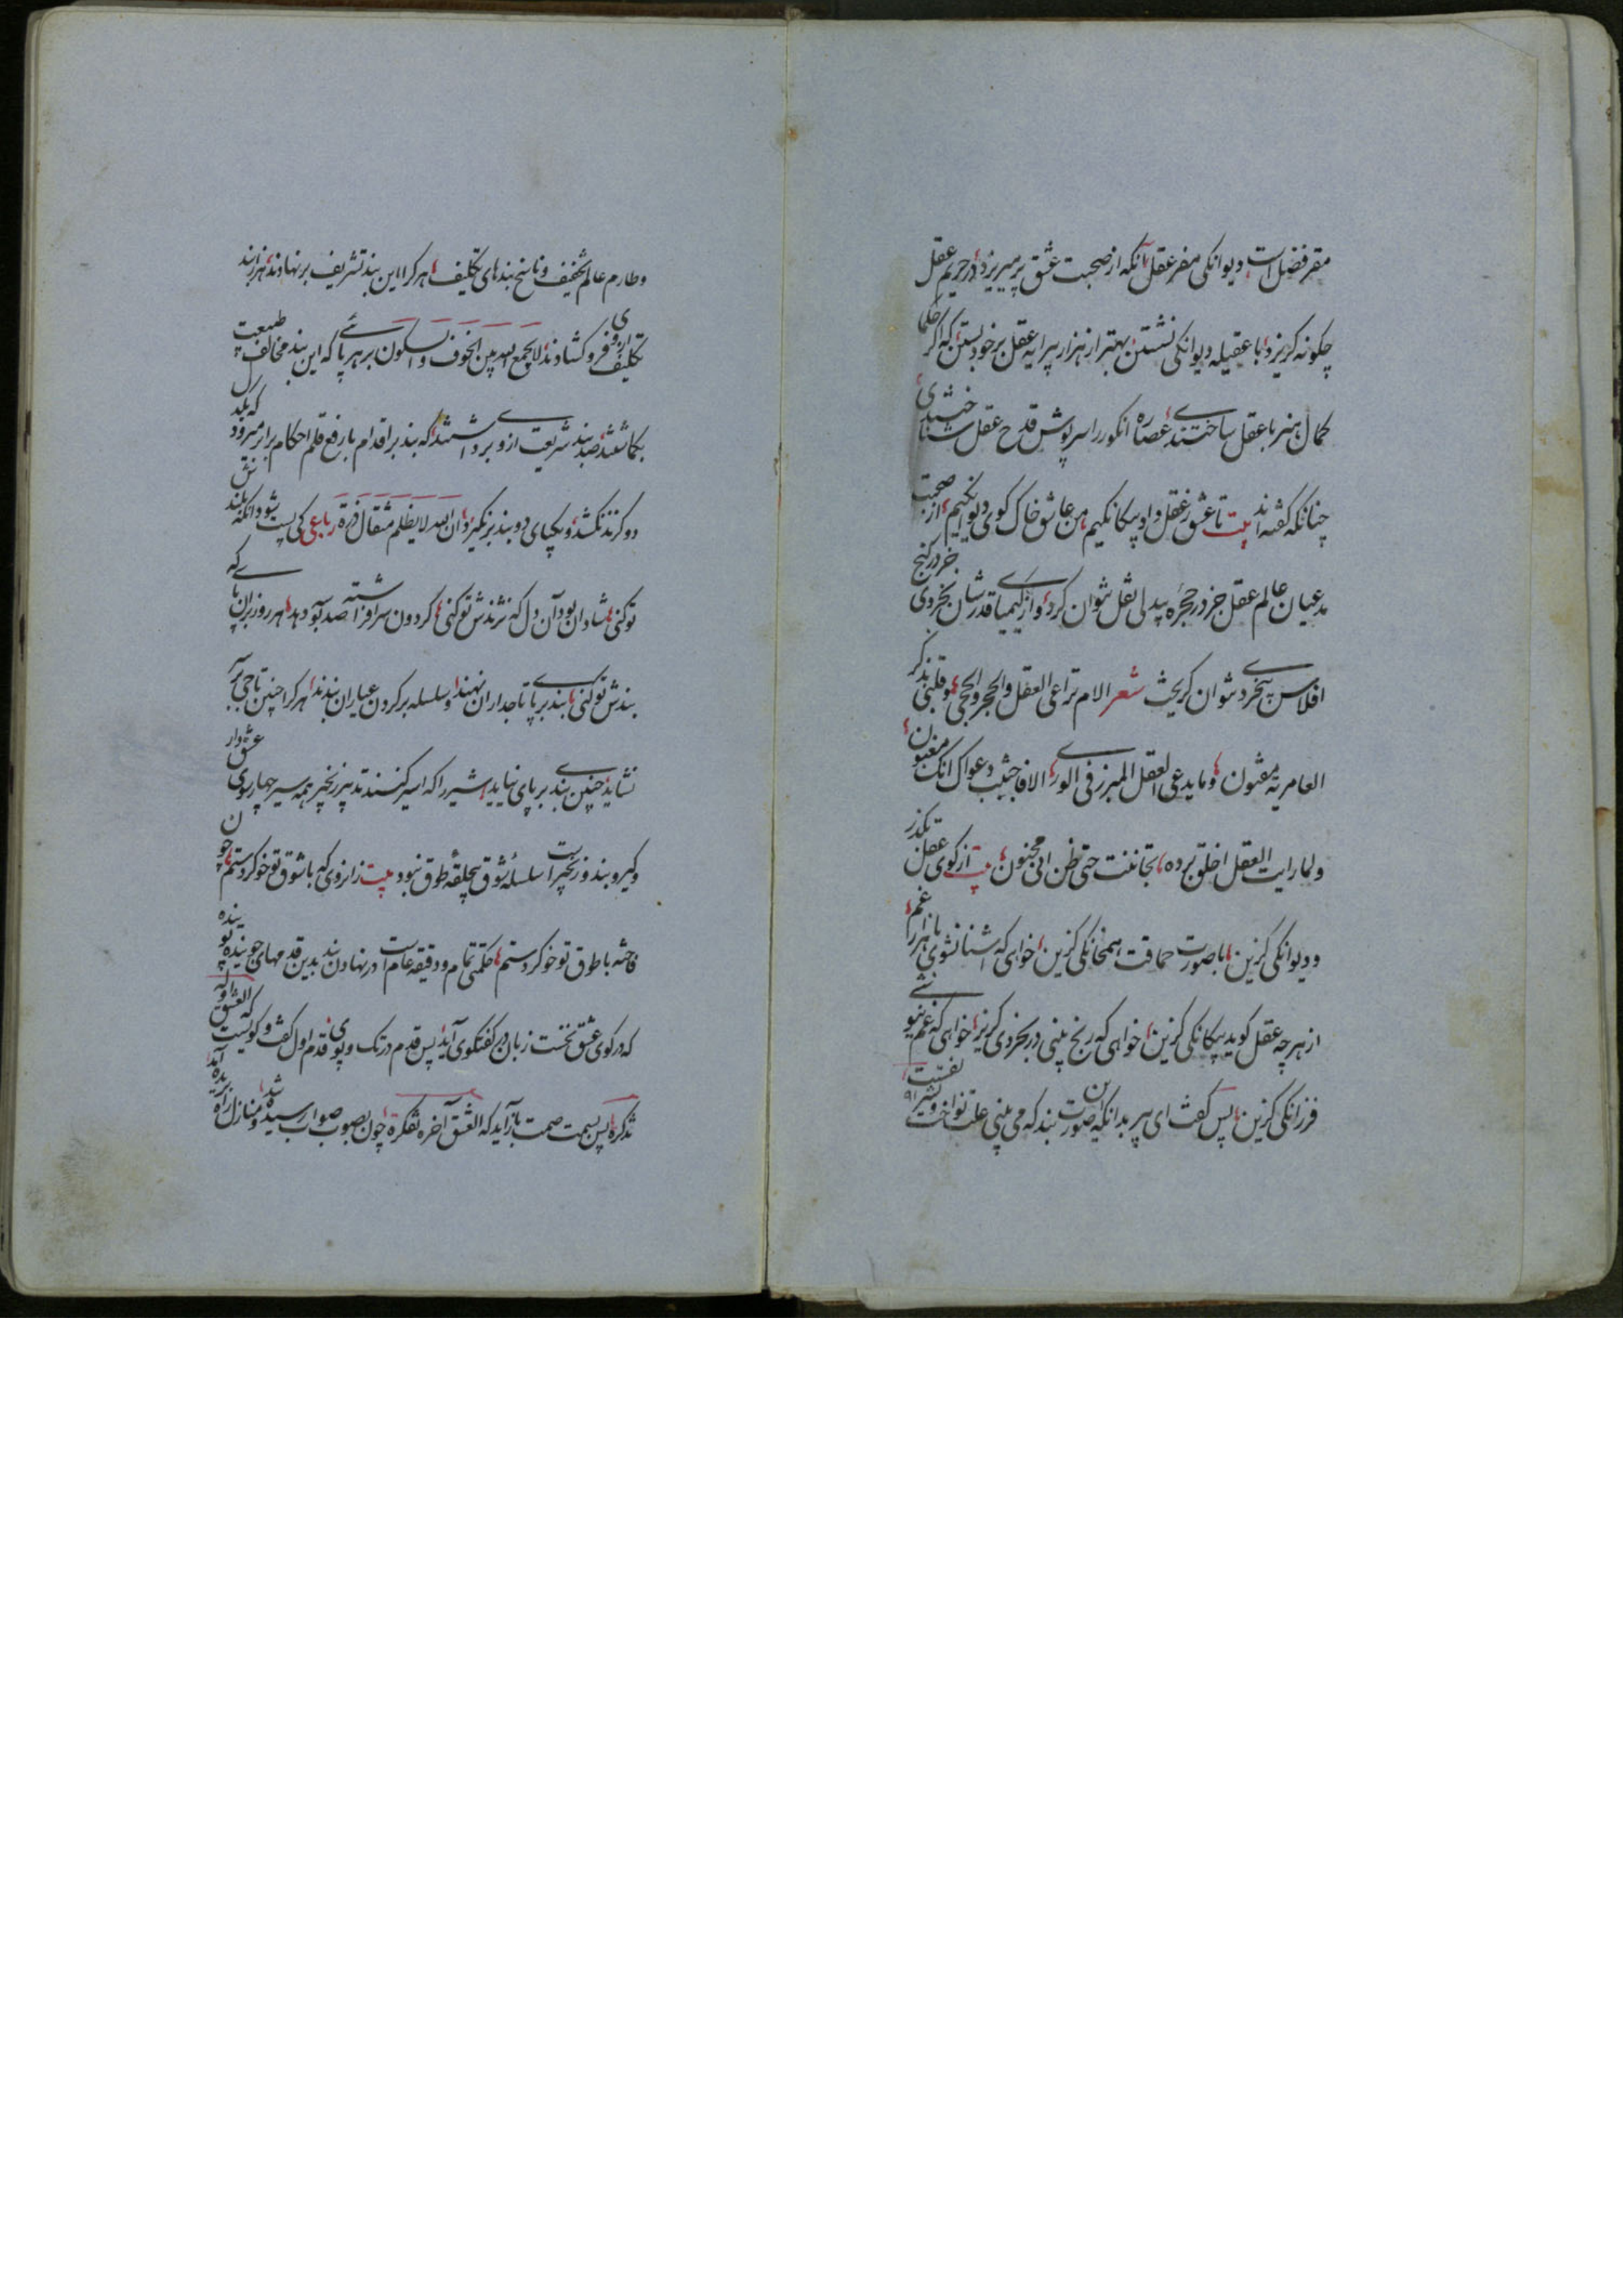 مقر فضل است و دیوانکی مفر عقل آنکه از صحبت عشق بپرهیزد در حریم عقل
چکونه کریزد با عقیله دیوانکی نشستن بهتر از هزار پیرایه عقل بر خود بستن که اکر حکما
کمال هنر با عقل ساختندی عصاره انکور را سرپوش قدح عقل نشناختندی
چنانکه کفته اند بیت تا عشق ز عقل و اد بیکانکیم من عاشق خاک کوی دیوانکیم از صحبت
مدعیان عالم عقل جز در حجره بیدلی نقل نتوان کرد و از کیمیا قدرشان بخردی جز در کنج
افلاس بیخردی نتوان کریخت شعر الام تراعی العقل والحجر والحجی وقلبی بذکر
العامریة مفتون وما یدعی العقل المبرز فی الوری الا فاجتنب دعواک انک مغبون
ولما رایت العقل اخلق برده تجاننت حتی ظن انی مجنون بیت از کوی عقل بکذر
و دیوانکی کزین با صورت حماقت همخانکی کزین خواهی که آشنا نشوی با هزار غم
از هر چه عقل کوید بیکانکی کزین خواهی که رنج بینی در بخردی کریز خواهی که غم نبینی
فرزانکی کزین پس کفت ای پیر بدانکه این صورت بند که می بینی علت نواخت و تشریفست
وطارم عالم تخفیف و ناسخ بندهای تکلیف هر کرا این بند تشریف بر نهادند هزار بند
تکلیف از وی فرو کشادند لا یجمع الله بین الخوف والسکون بر هر پائی که این بند مخالف طبیعت
بکماشتند صد بند شریعت ازو برداشتند که بند بر اقدام با رفع قلم احکام برابر میرود که یک دل
دو کزند نکشد و یکپای دو بند برنکیرد و ان الله لا یظلم مثقال ذرة رباعی کی پست شود آنکه بلندش
تو کنی شادان بود آن دل که نژندش تو کنی کردون سرافراشته صد بوسه دهد هر روز بر آن پای که
بندش تو کنی بند بر پای تاجداران نهند و سلسله بر کردن عیاران بندند هر کرا چنین تاجی بر سر
نشاید چنین بندی بر پای نیاید شیر را که اسیر کنند تدبیر زنجیر همه سیر چهارسوی عشق دار
وکیر و بند و زنجیر است سلسله شوق بیحلقه طوق نبود بیت زانروی که با شوق تو خو کردستم چون
فاخته با طوق تو خو کردستم حکمتی تمام و دقیقه عام است در نهادن بند بدین قدمهای جوینده پوینده
که در کوی عشق نخست زبان در کفتکوی آید پس قدم در تک و پوی قدم اول کفت و کویست که العشق اوله
تذکره پس بسمت صمت باز آید که العشق آخره تفکره چون بصوب صواب رسیده شد و منازل راه بریده آید